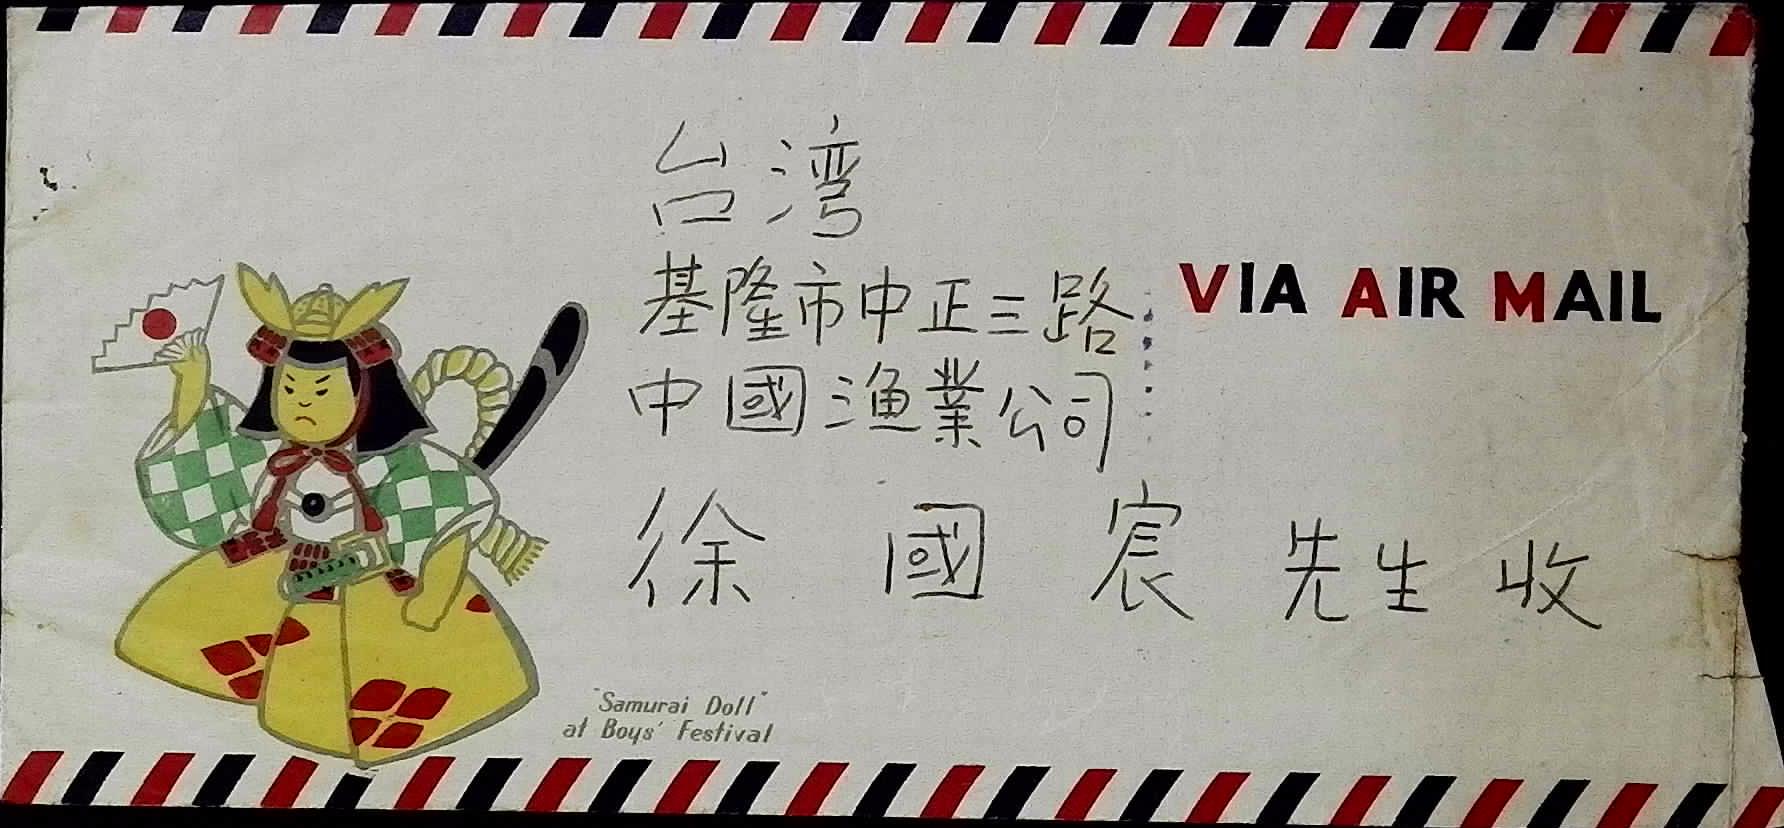 台湾
基隆市中正三路
VIA AIR MAIL
中國漁業公司
徐國宸先生收
"Samurai Doll"
at Boys' Festival